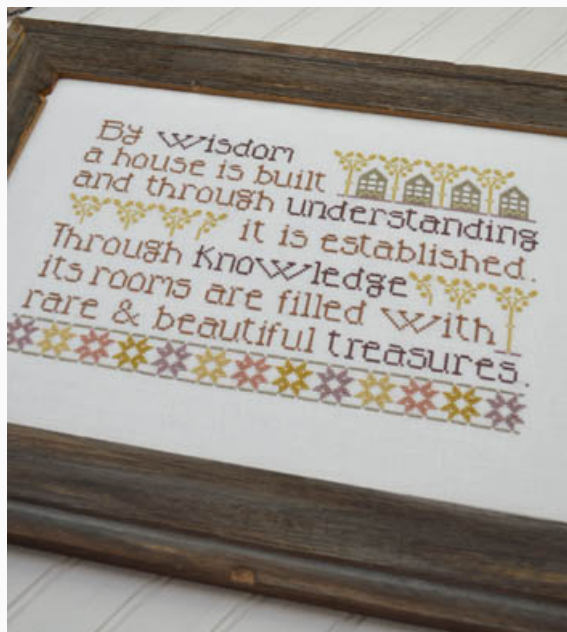 By wisdom
a house is built
and through understanding
it is established.
Through knowledge
its rooms are filled with
rare & beautiful treasures.